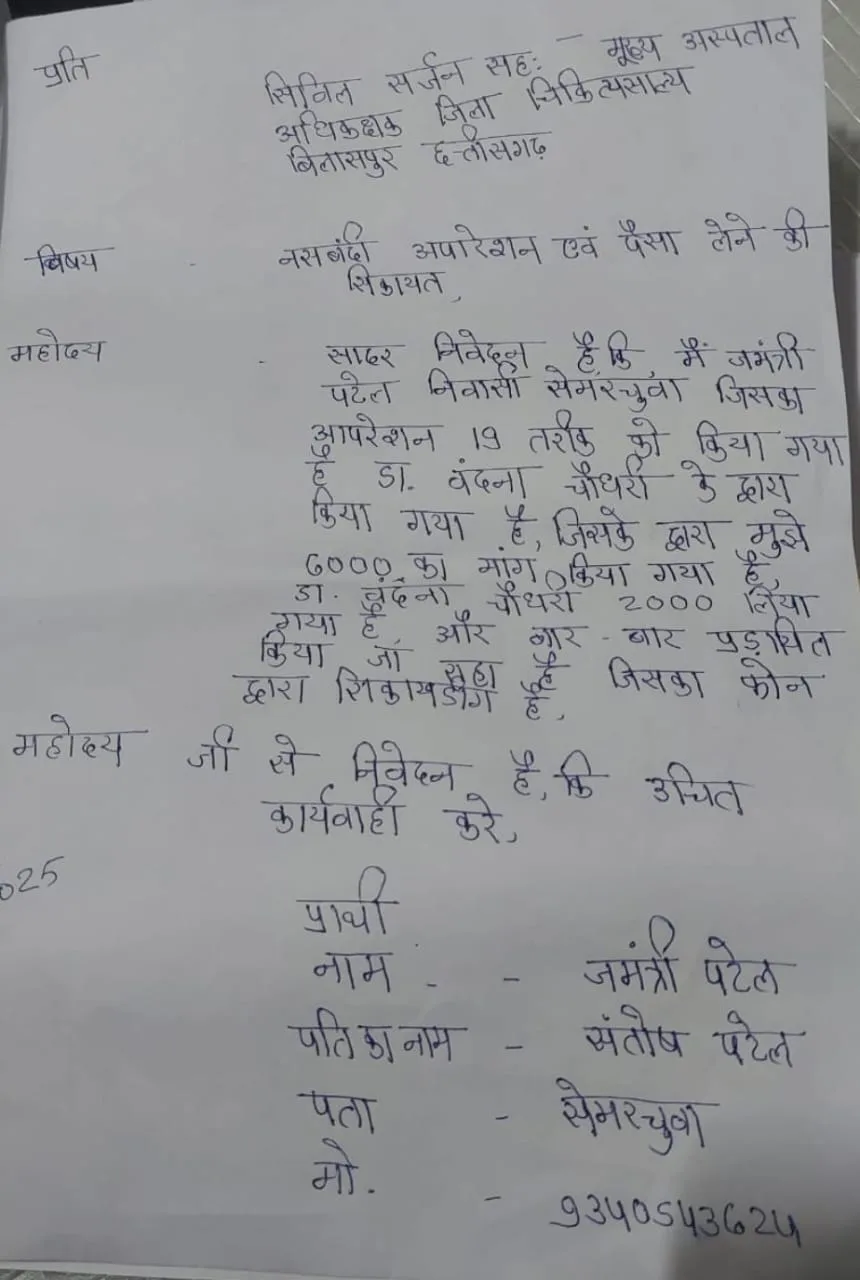 प्रति
सिविल सर्जन सह: - मूख्य अस्पताल
अधिकक्षक जिला चिकित्यसाल्य
बिलासपुर छत्तीसगढ़
बिषय - नसबंदी अपारेशन एवं पैसा लेने की
सिकायत,
महोदय - सादर निवेदन है, कि, मैं जमंत्री
पटेल निवासी सेमरचुवा जिसका
आपरेशन 19 तरीक को किया गया
है डा. वंदना चौधरी के द्वारा
किया गया है, जिसके द्वारा मुझे
6000 का मांग किया गया है,
डा. वंदना चौधरी 2000 लिया
गया है, और बार - बार प्रड़ासित
किया जा रहा है जिसका फोन
द्वारा सिकायत है,
महोदय जी से निवेदन है, कि उचित
कार्यवाही करे,
025
प्राथी
नाम - - जमंत्री पटेल
पति का नाम - संतोष पटेल
पता - सेमरचुवा
मो. - 9340543624